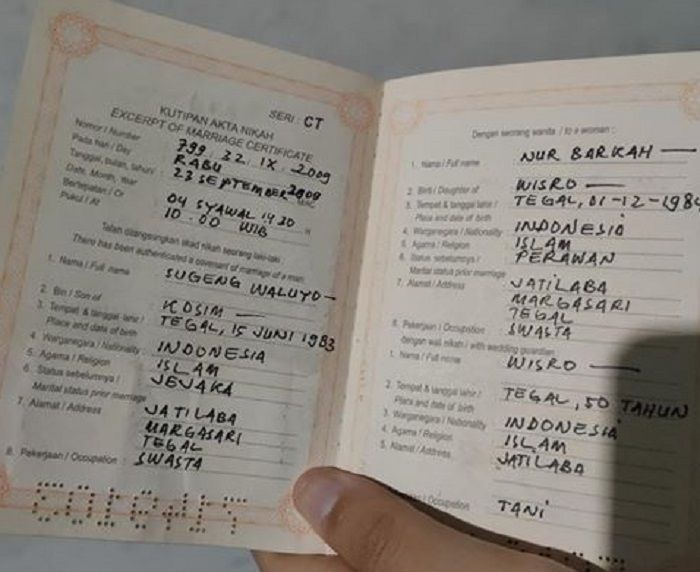 SERI : CT
KUTIPAN AKTA NIKAH
EXCERPT OF MARRIAGE CERTIFICATE
Nomor / Number 799. 22. IX. 2009
Pada hari / Day RABU
Tanggal, bulan, tahun / 23 SEPTEMBER 2009
Date, Month, Year
Bertepatan / Or 04 SYAWAL 1430 H
Pukul / At 10.00 WIB
Telah dilangsungkan akad nikah seorang laki-laki :
There has been authenticated a covenant of marriage of a man:
1. Nama / Full name SUGENG WALUYO
2. Bin / Son of KOSIM
3. Tempat & tanggal lahir / TEGAL, 15 JUNI 1983
Place and date of birth
4. Warganegara / Nationality : INDONESIA
5. Agama / Religion ISLAM
6. Status sebelumnya / JEJAKA
Marital status prior marriage
7. Alamat / Address JATILABA
MARGASARI
TEGAL
8. Pekerjaan / Occupation : SWASTA
Dengan seorang wanita / to a woman :
1. Nama / Full name NUR BARKAH
2. Binti / Daughter of WISRO
3. Tempat & tanggal lahir / TEGAL, 01-12-1984
Place and date of birth
4. Warganegara / Nationality : INDONESIA
5. Agama / Religion ISLAM
6. Status sebelumnya / PERAWAN
Marital status prior marriage
7. Alamat / Address JATILABA
MARGASARI
TEGAL
8. Pekerjaan / Occupation : SWASTA
dengan wali nikah / with wedding guardian
1. Nama / Full name WISRO
2. Tempat & tanggal lahir / TEGAL, 50 TAHUN
Place and date of birth
3. Warganegara / Nationality INDONESIA
4. Agama / Religion ISLAM
5. Alamat / Address JATILABA
Occupation TANI